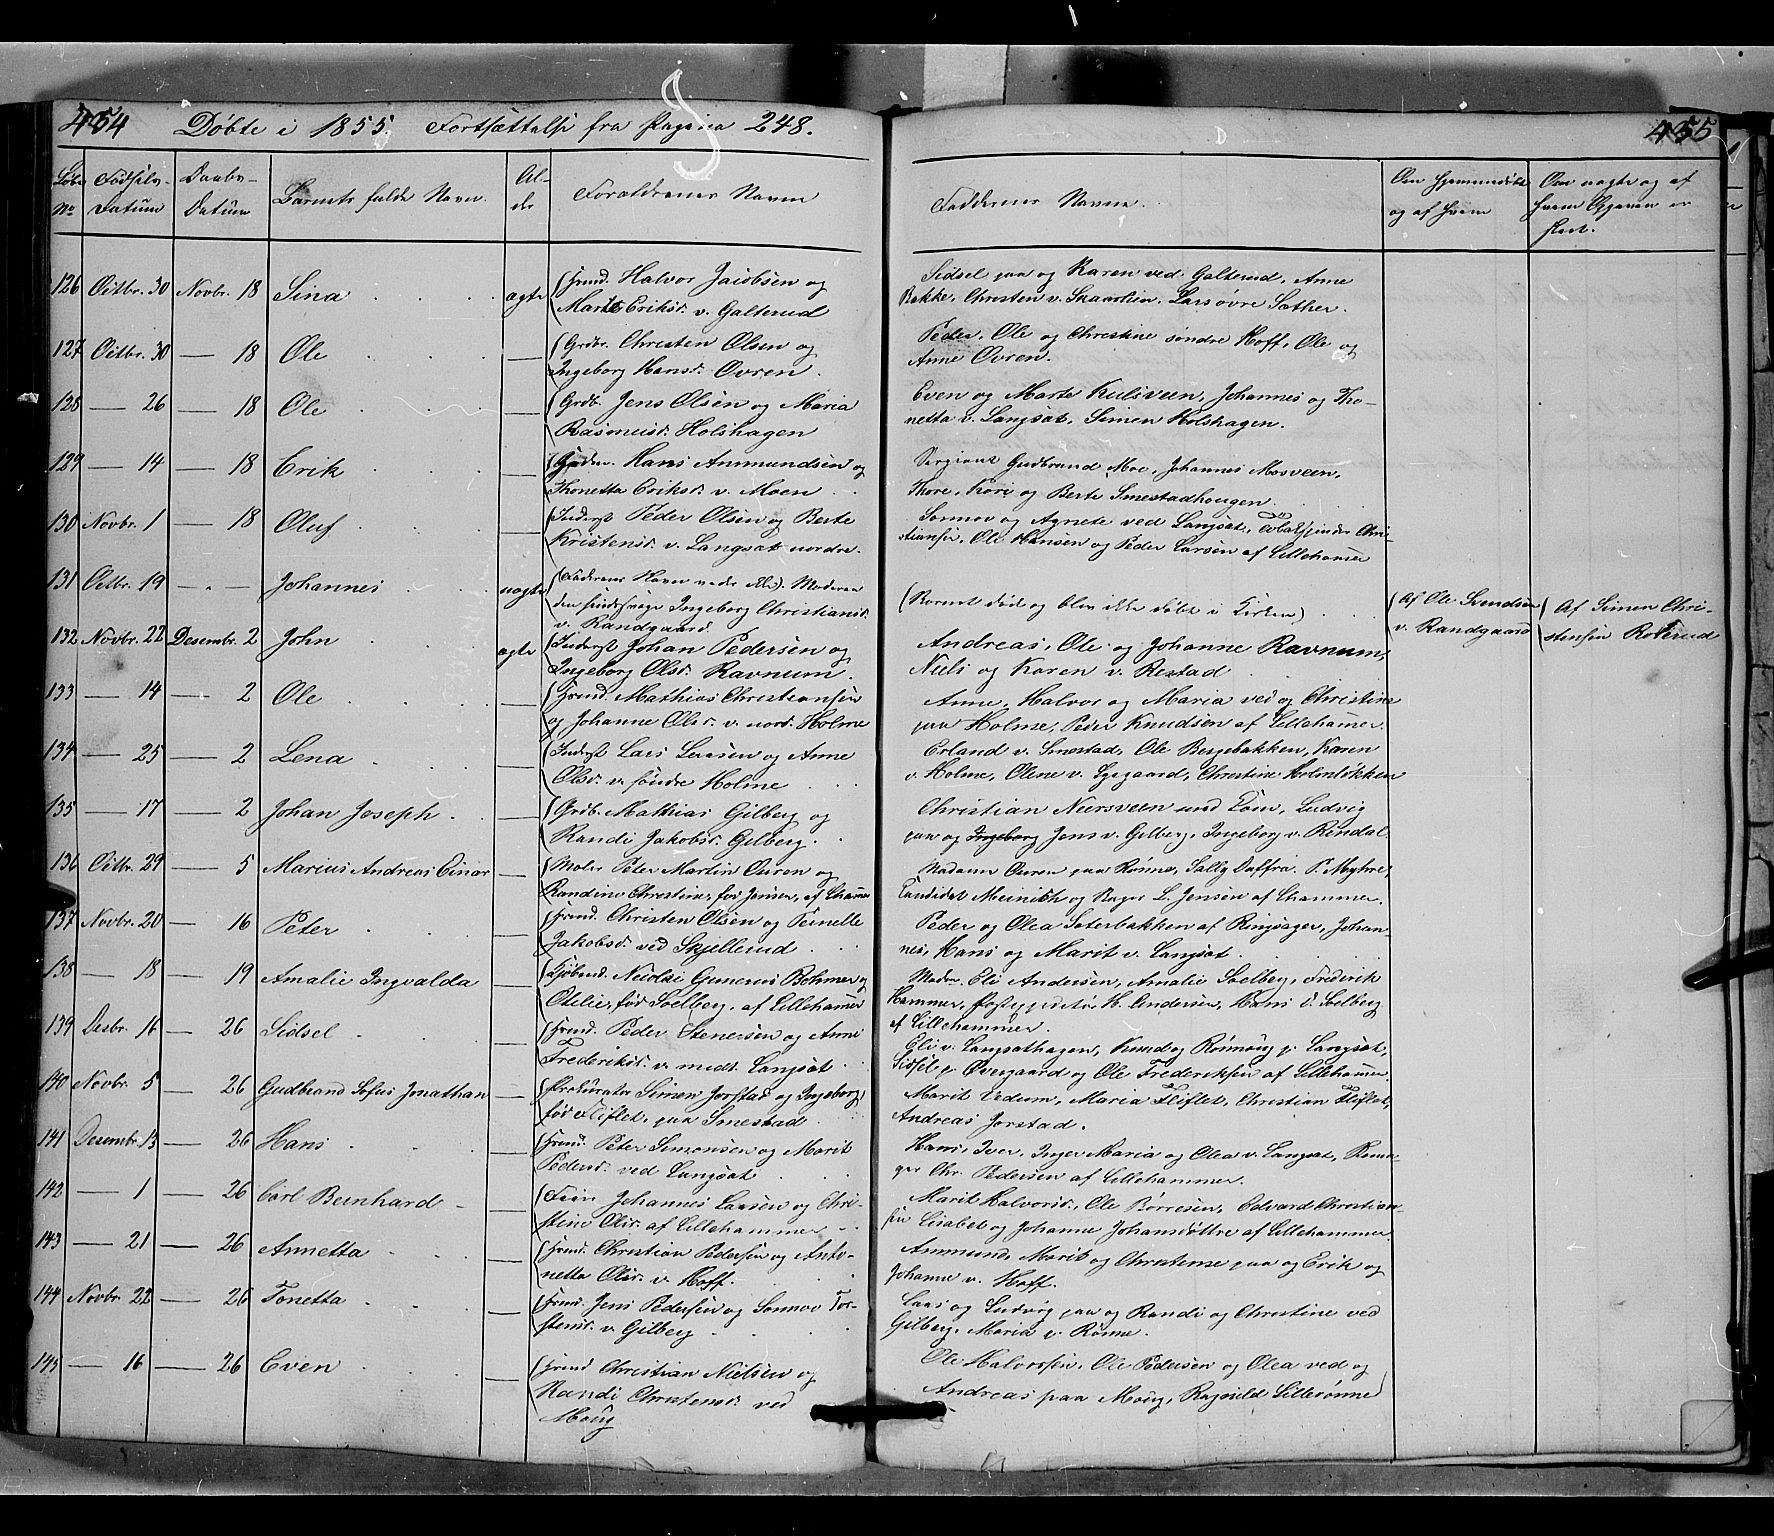 454 Døbte i 1855. Fortsættelse fra Pagina 248.
Løbe No
Fødsels-Datum
Daabs-Datum
Barnets fulde Navn.
Al-
der
Forældrenes Navne
126 Octbr. 30 Novbr. 18 Sina ægte Huusmd. Halvor Jacobsen og
Marte Eriksd. v. Galterud
127 Octbr. 30 — 18 Ole — Grdbr. Christen Olsen og
Ingeborg Hansd. Ovren.
128 — 26 — 18 Ole — Grdb. Jens Olsen og Maria
Rasmusd. Holshagen
129 — 14 — 18 Erik — Hans Ammundsen og
Thonetta Eriksd. v. Moen
130 Novbr. 1 — 18 Oluf — Inderst Peder Olsen og Berte
Kristensd. v. Langsæt nordre.
131 Octbr. 19 — " — Johannes uægte (Faderens Navn ikke). Moderen
Ingeborg Christiansd.
v. Randgaard.
132 Novbr. 22 Desembr. 2 John ægte Inderst Johan Pedersen og
Ingeborg Olsd. Ravnum.
133 — 14 — 2 Ole — Huusmd. Mathias Christiansen
og Johanne Olsd. v. nord. Holme
134 — 25 — 2 Lena — Inderst Lars Larsen og Anne
Olsd. v. søndre Holme
135 — 17 — 2 Johan Joseph — Grdb. Mathias Gilberg og
Randi Jakobsd. Gilberg.
136 Octbr. 29 — 5 Marius Andreas Einar — Maler Peter Martin Ouren og
Randine Christine, fød Jensen, af Lhammer
137 Novbr. 20 — 16 Peter — Huusmd. Christen Olsen og Pernelle
Jakobsd. ved Skjellerud
138 — 18 — 19 Amalie Ingvalda — Kjøbmd. Nicolai Gunerus Bohmer og
Otelie, fød Soelberg, af Lillehammer
139 Desbr. 16 — 26 Sidsel — Huusmd. Peder Stenersen og Anne
Frederiksd. v. medt. Langsæt
140 Novbr. 5 — 26 Gudbrand Sofus Jonathan — Prokurator Simen Jorstad og Ingeborg,
fød Fliflet, paa Smestad
141 Desembr. 13 — 26 Hans — Huusmd. Peter Simonsen og Marit
Pedersd. ved Langsæt
142 — 1 — 26 Carl Bernhard — Johannes Larsen og Chri-
stine Olsd. af Lillehammer
143 — 21 — 26 Annetta — Huusmd. Christian Pedersen og Anto-
netta Olsd. v. Hoff.
144 Novbr. 22 — 26 Tonetta — Huusmd. Jens Pedersen og Sonnov Tor-
stensd. v. Gilberg
145 — 16 — 26 Even — Huusmd. Christian Nielsen og
Randi Christensd. ved
Moug
455
Faddernes Navne.
Om hjemmedøbt
og af hvem
Om uægte og af
hvem Opgaven er
skeet.
Sidsel paa og Karen ved Galterud, Anne
Bakke, Christen v. Skaarlien, Lars øvre Sæther.
Peder, Ole og Christine søndre Hoff, Ole og
Anne Ovren.
Even og Marte Kulsveen, Johannes og Tho-
netta v. Langsæt, Simen Holshagen.
Sergiant Gudbrand Moe, Johannes Mosveen,
Thore, Kari og Berte Smestadhougen
Sonnov og Agnete ved Langsæt, Chri-
stiansen, Ole Hansen og Peder Larsen af Lillehammer
(Barnet død og blev ikke døbt i Kirken)
Af Ole Svendsen
v. Randgaard
Af Simen Chri-
stensen Roterud
Andreas, Ole og Johanne Ravnum,
Niels og Karen v. Restad
Anne, Halvor og Maria ved og Christine
paa Holme, Peder Knudsen af Lillehammer.
Erland v. Smestad, Ole Bergebakken, Karen
v. Holme, Olene v. Sygaard, Christine Holmløkken
Christian Neersveen Ludvig
paa og Ingeborg Jens v. Gilberg, Ingeborg v. Rindal
Madame Ouren paa Rønne, Sally Daffra. P. Myhre,
Candidat Meinich og Bager L. Jensen af Lhammer.
Peder og Olea Sæterbakken af Ringsager, Johan-
nes, Hans og Marit v. Langsæt.
Madm. Eli Andersen, Amalie Soelberg, Frederik
Hammer, H. Andersen, Hans Soelberg
af Lillehammer.
Eli v. Langsæthagen, Knud og Rønnoug p. Langsæt,
Sidsel p. Overgaard og Ole Frederiksen af Lillehammer.
Marit Vedum, Maria Fliflet, Christian Fliflet,
Andreas Jorstad.
Hans, Iver, Inger Maria og Olea v. Langsæt,
Chr. Pedersen af Lillehammer.
Marit Halvorsd., Ole Børresen, Edvard Christian-
sen Lisabet og Johanne Johansdøttre af Lillehammer.
Ammund, Marit og Christense paa og Erik og
Johanne v. Hoff.
Lars og Ludvig paa og Randi og Christine ved
Gilberg, Maria v. Rønne.
Ole Halvorsen, Ole Pedersen og Olea ved og
Andreas paa Moug, Ragnild Lillerønne